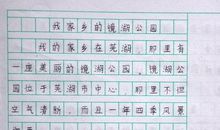 我家乡的镜湖公园
我的家乡在芜湖，那里有
一座美丽的镜湖公园。镜湖公
园位于芜湖市中心，那里不但
空气清新，而且一年四季风景